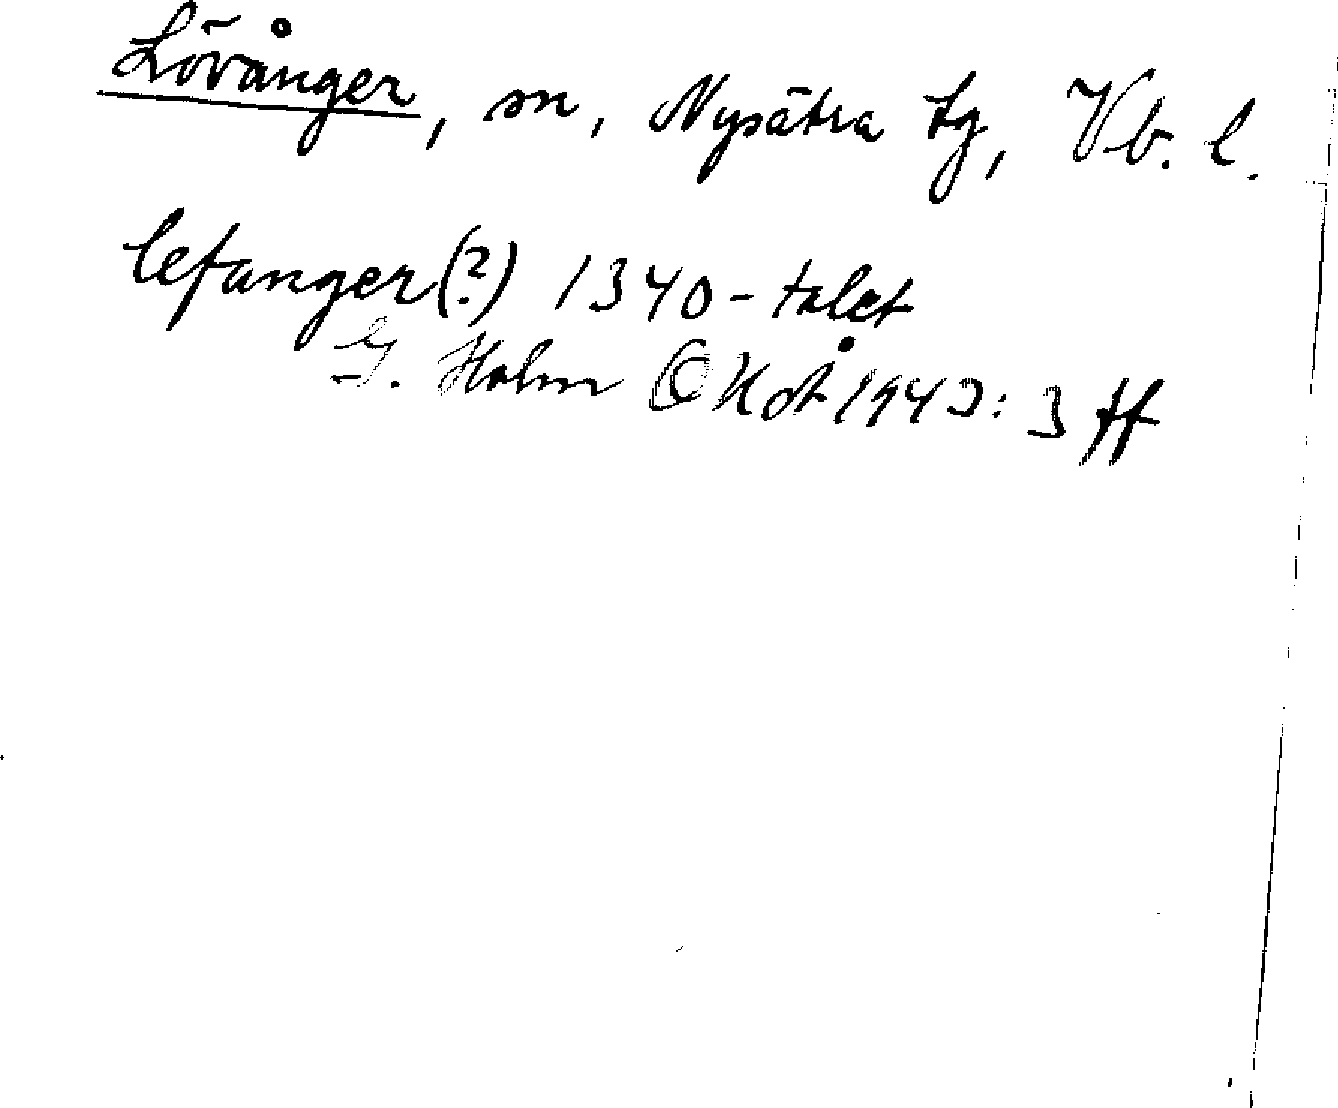 Lövånger, sn, Nysätra tg, Vb. l.
lefanger (?) 1340-talet
G. Holm OUOÅ 1949: 3 ff